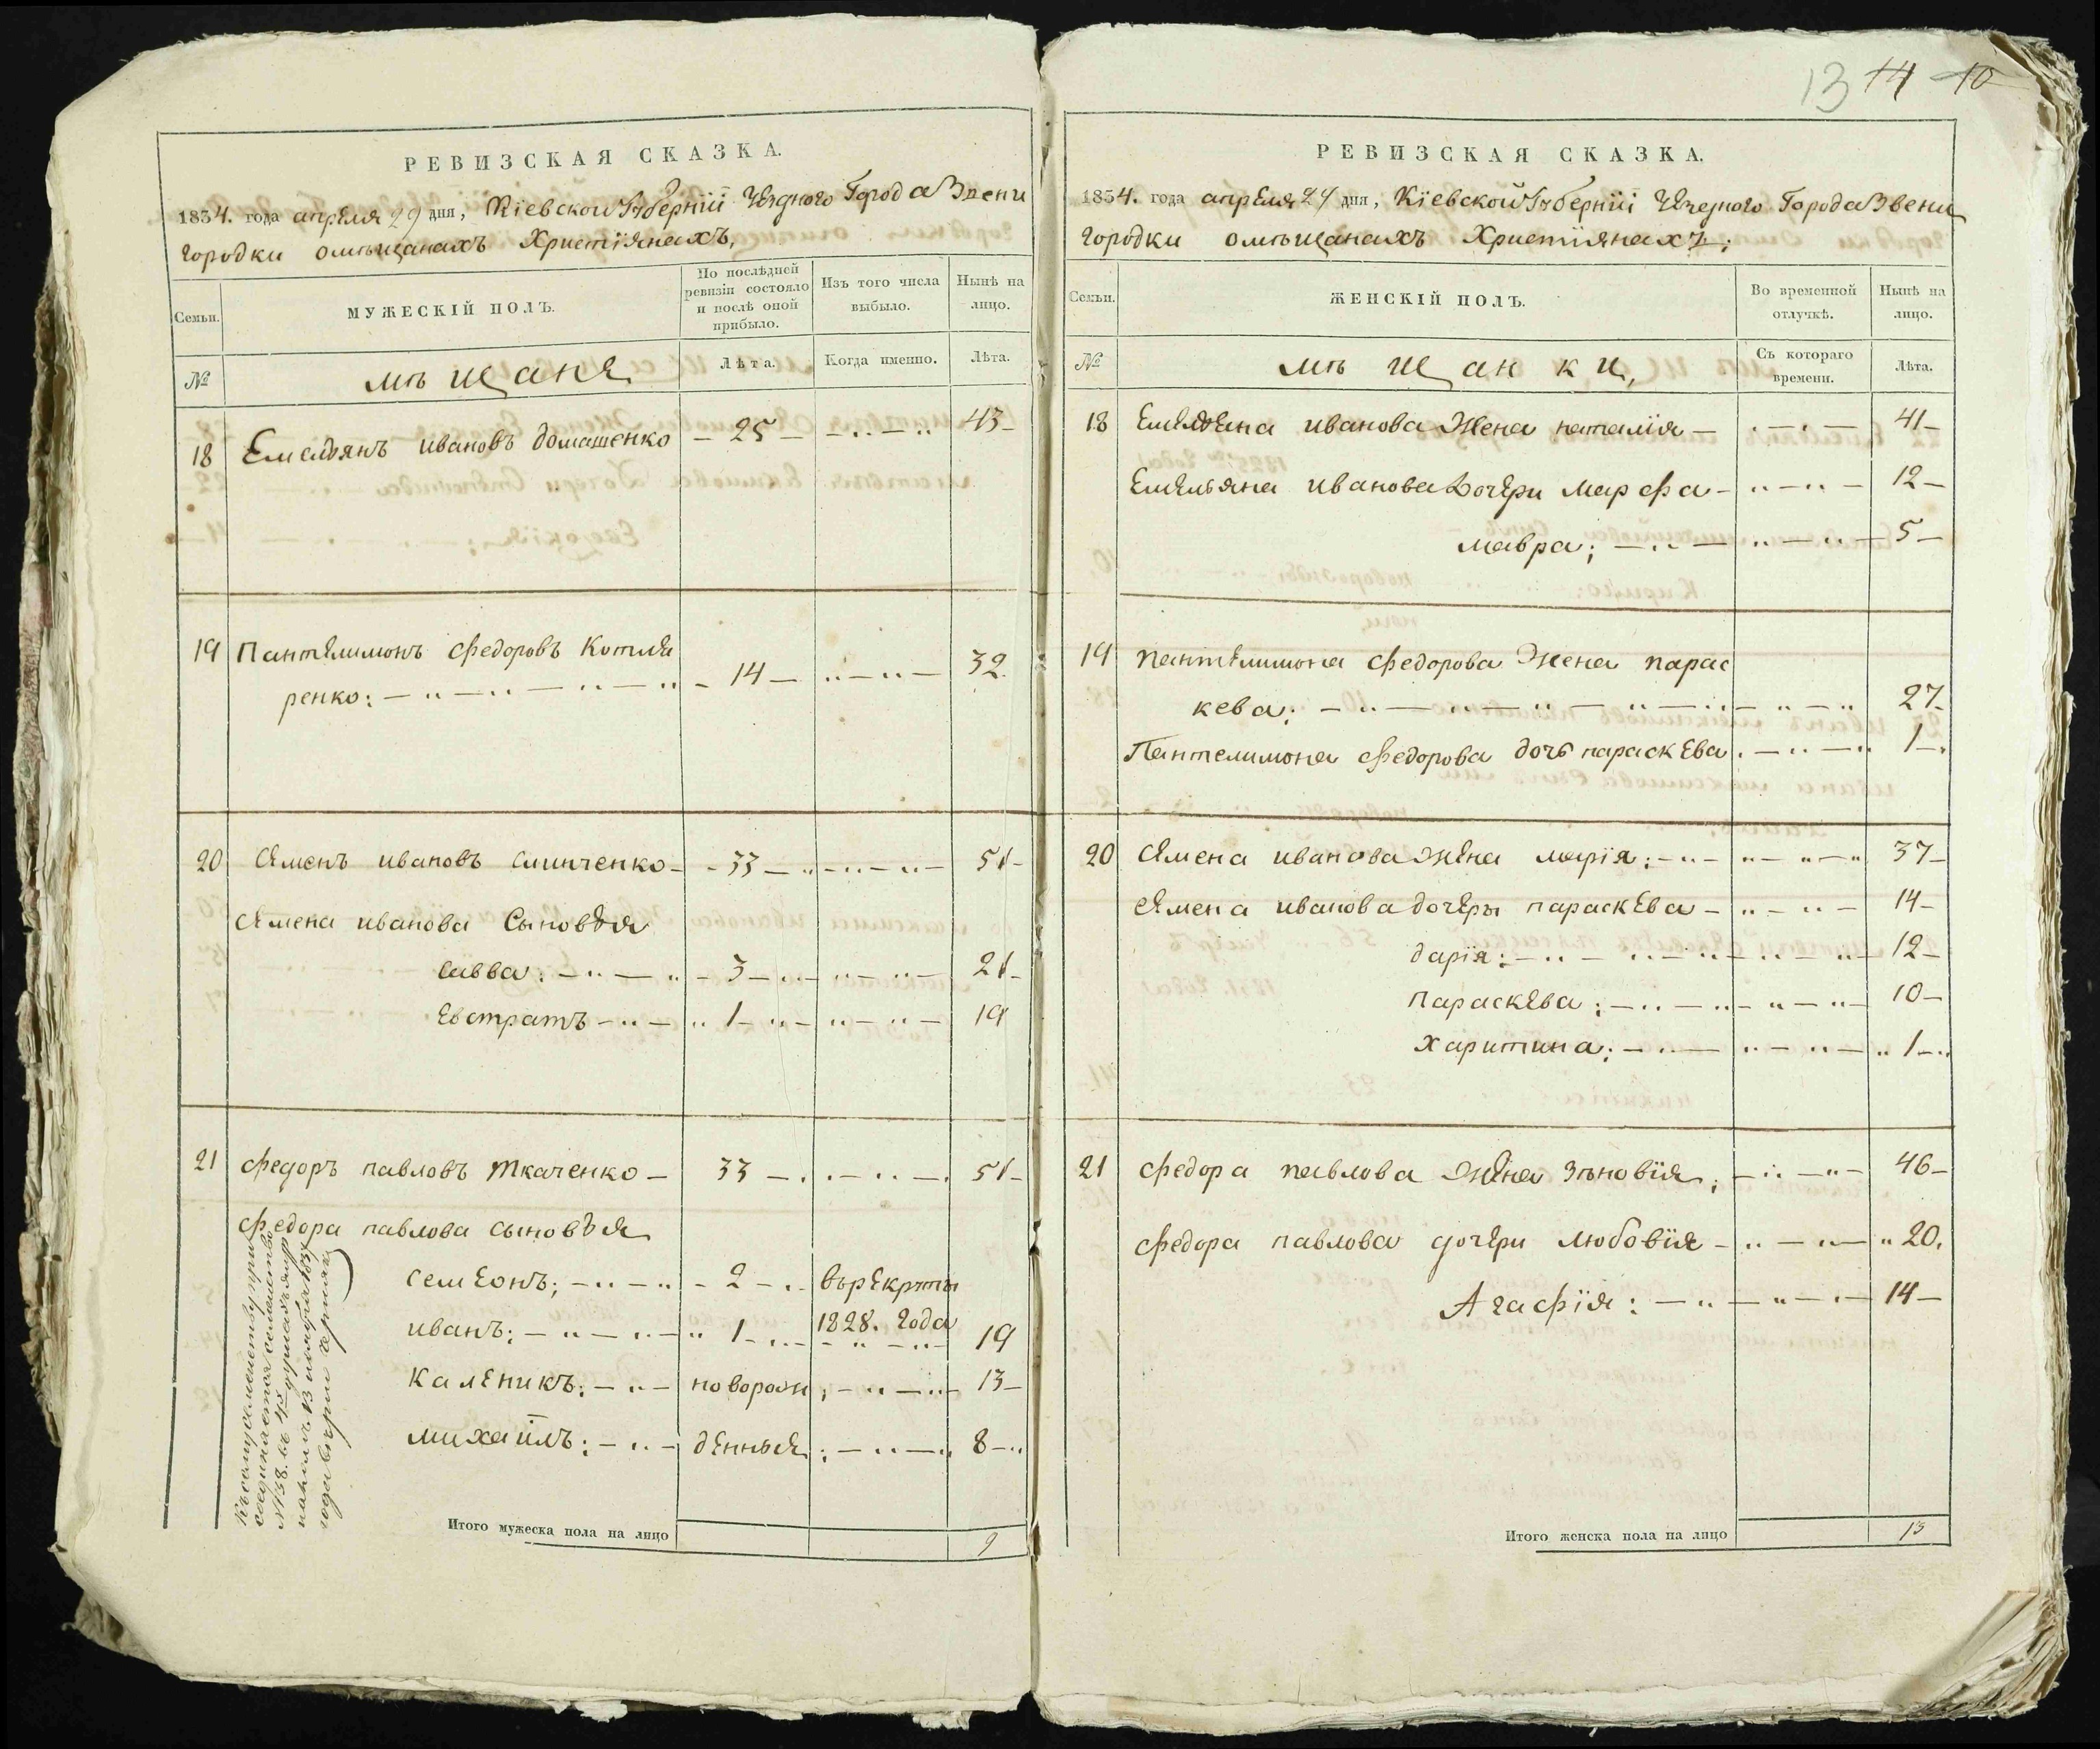 РЕВИЗСКАЯ СКАЗКА.
1834. года апреля 29 дня, Кіевской Губерніи Уезднаго Города Звени
городки омѣщанахъ Христіянахъ,
Семьи.
МУЖЕСКІЙ ПОЛЪ.
По послѣдней
ревизіи состояло
и послѣ оной
прибыло.
Изъ того числа
выбыло.
Нынѣ на
лицо.
№
мѣщане
Лѣта.
Когда именно.
Лѣта.
18 Емельянъ ивановъ домашенко — 25 — 43 —
19 Пантелимонъ федоровъ Котля
ренко: — 14 — 32.
20 Семенъ ивановъ слинченко — 33 — 51 —
Семена иванова Сыновья
савва: — 3 — 21 —
Евстратъ — 1 — 19
21 федоръ павловъ Ткаченко — 33 — 51 —
федора павлова сыновья
семеонъ; — 2 — вьрекруты
1828. года
иванъ; — 1 — 19
каленикъ: — новорож; — 13 —
михаилъ: — денные; — 8 —
Къ сему семейству при
соединяется семейство
№138. въ
Итого мужеска пола на лицо 9
13 14 10
РЕВИЗСКАЯ СКАЗКА.
1834. года апреля 29 дня, Кіевской Губерніи Уезднаго Города Звени
городки омѣщанахъ Христіянахъ;
Семьи.
ЖЕНСКІЙ ПОЛЪ.
Во временной
отлучкѣ.
Нынѣ на
лицо.
№
мѣщанки,
Съ котораго
времени.
Лѣта.
18 Емельяна иванова Жена наталія — 41 —
Емельяна иванова Дочери Марфа — 12 —
мавра; — 5 —
19 пантелимона федорова Жена парас
кева: — 27 —
Пантелимона федорова дочь параскева — 1 —
20 Семена иванова жена марія: — 37 —
Семена иванова дочеры параскева — 14 —
дарія: — 12 —
параскева: — 10 —
харитина: — 1 —
21 федора павлова жена Зѣновія; — 46 —
федора павлова дочери любовія — 20.
Агафія: — 14 —
Итого женска пола на лицо 13